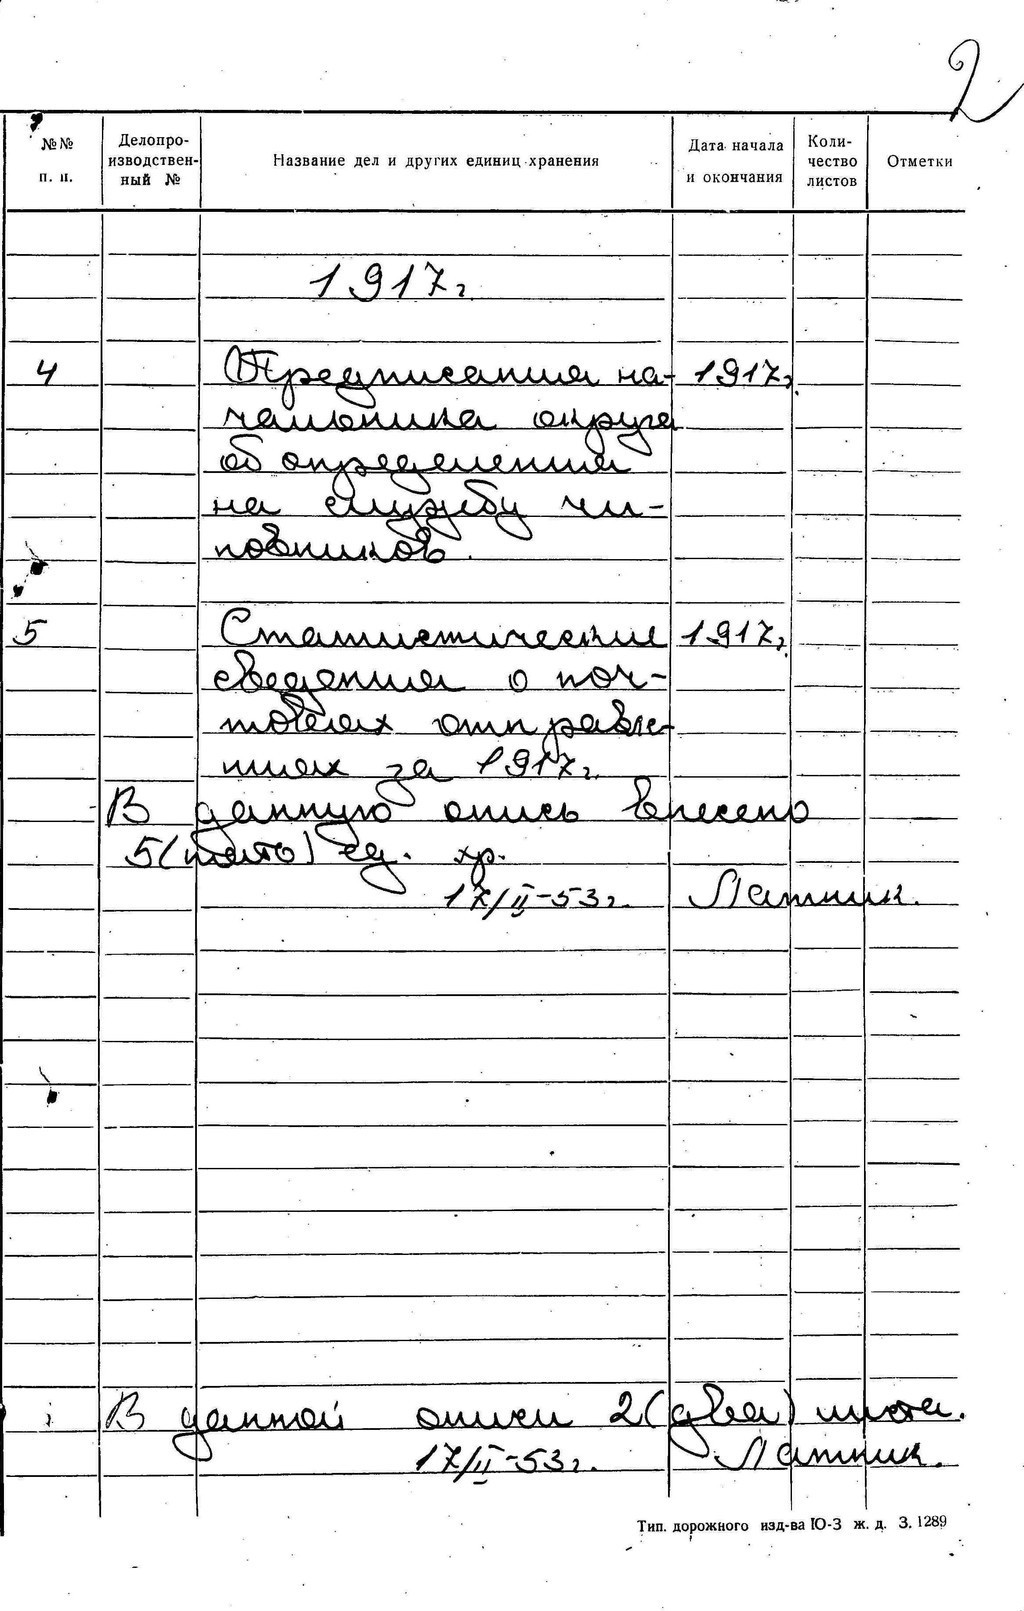 2
№№ п. п.
Делопро-
изводствен-
ный №
Название дел и других единиц хранения
Дата начала
и окончания
Коли-
чество
листов
Отметки
1917г
4 Предписания на- 1917г.
чальника округа
об определении
на службу чи-
новников.
5 Статистические 1917г.
сведения о поч-
товых отправле-
ниях за 1917г.
В данную опись внесено
5(пять) ед. хр.
17/II-53г. Латник.
В данной описи 2(два) листа.
17/II-53г. Латник.
Тип. дорожного изд-ва Ю-З ж. д. З. 1289